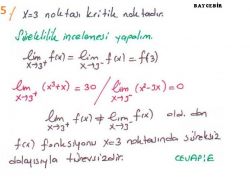 BAYGEBİR
5/ x=3 noktası kritik noktadır.
Süreklilik incelemesi yapalım.
lim x→3⁺ f(x) = lim x→3⁻ f(x) = f(3)
lim x→3⁺ (x³+x) = 30 / lim x→3⁻ (x²-3x) = 0
lim x→3⁺ f(x) ≠ lim x→3⁻ f(x) old. dan
f(x) fonksiyonu x=3 noktasında süreksiz
dolayısıyla türevsizdir. CEVAP:E